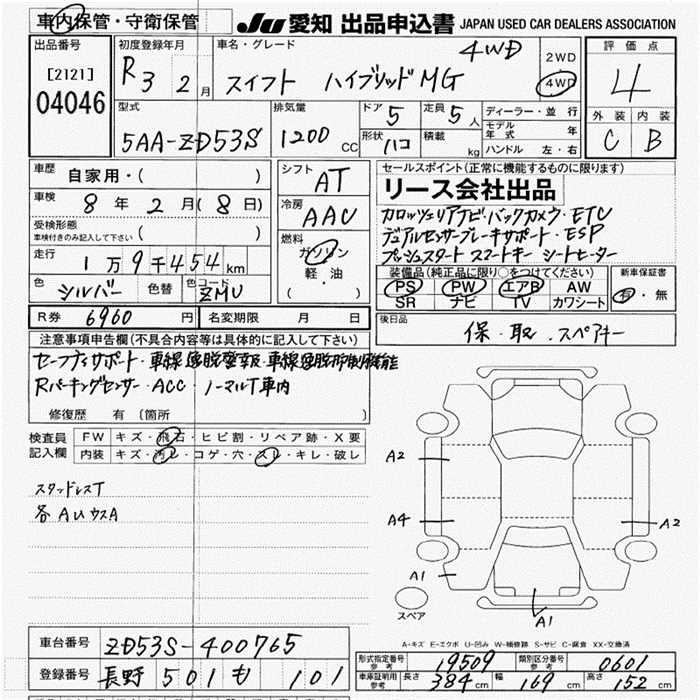 車内保管・守衛保管
JU 愛知 出品申込書 JAPAN USED CAR DEALERS ASSOCIATION
出品番号
[2121]
04046
初度登録年月
R3 2月
車名・グレード
スイフト ハイブリッドMG 4WD
2WD
4WD
評価点
4
外装 内装
C B
型式
5AA-ZD53S
排気量
1200 CC
ドア 5
定員 5人
形状 ハコ
積載 kg
ディーラー・並行
モデル年式 年
ハンドル 左・右
車歴 自家用・( )
車検 8年2月(8日)
受検形態
車検付きのみ記入して下さい ( )
走行 1万9千454km
色 シルバー
色替
色コード ZMU
シフト AT
冷房 AAC
燃料
ガソリン
軽・油
( )
セールスポイント(正常に機能するものに限ります)
リース会社出品
カロッツェリアナビ・バックカメラ・ETC
デュアルセンサーブレーキサポート・ESP
プッシュスタート スマートキー シートヒーター
装備品(純正品に限り○をつけてください)
PS PW エアB AW
SR ナビ TV カワシート
新車保証書
有・無
R券 6960円
名変期限 月 日
後日品 保・取・スペアキー
注意事項申告欄(不具合内容等は具体的に記入して下さい)
セーフティサポート・車線逸脱警報・車線逸脱抑制機能
Rパーキングセンサー・ACC・ノーマルT車内
修復歴 有 〔箇所 〕
検査員記入欄
FW キズ・飛石・ヒビ割・リペア跡・X要
内装 キズ・汚レ・コゲ・穴・スレ・キレ・破レ
スタッドレスT
各AUウスA
A2
A4
A1
A2
A1
スペア
A-キズ E-エクボ U-凹み W-補修跡 S-サビ C-腐食 XX-交換済
車台番号 ZD53S-400765
登録番号 長野 501 も 101
形式指定番号 参考 19509
類別区分番号 参考 0601
車庫証明用 参考 長さ 384cm 幅 169cm 高さ 152cm